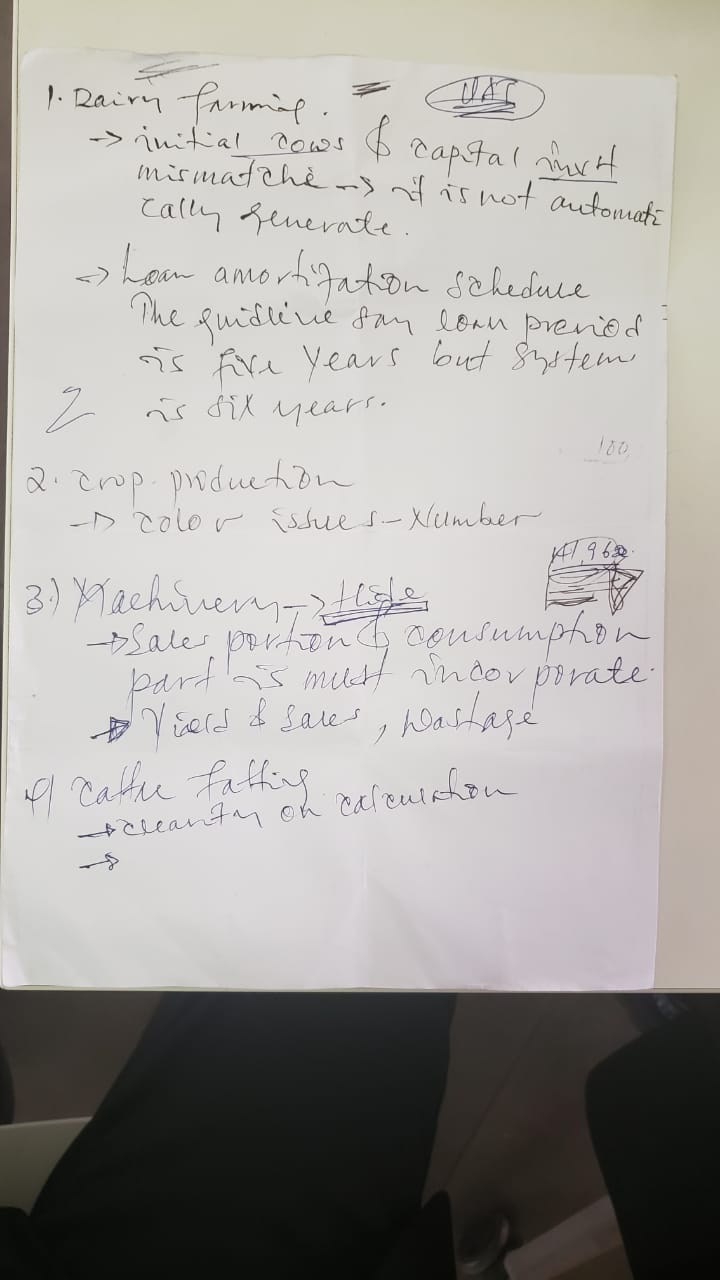 1. Dairy farming.
UAT
-> initial cows & capital invt
mismatche -> it is not automati
cally generate.
-> Loan amortization schedule
The guidline say loan preriod
is five years but system
is six years.
2
100
2. crop production
-> color issues - Number
3.) Machinery -> Hide
-> Sales portion & consumption
part is must incorporate.
-> Yield & sales, Wastage
4) Cattle fatting
-> clearity on calculation
->